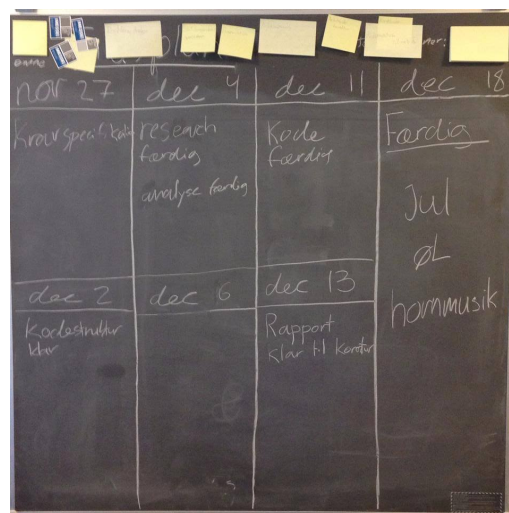 nov 27
dec 4
dec 11
dec 18
Kravspecifikation
reseach
færdig
analyse færdig
Kode
færdig
Færdig
Jul
ØL
hornmusik
dec 2
dec 6
dec 13
Kodestruktur
klar
Rapport
klar til korrtur